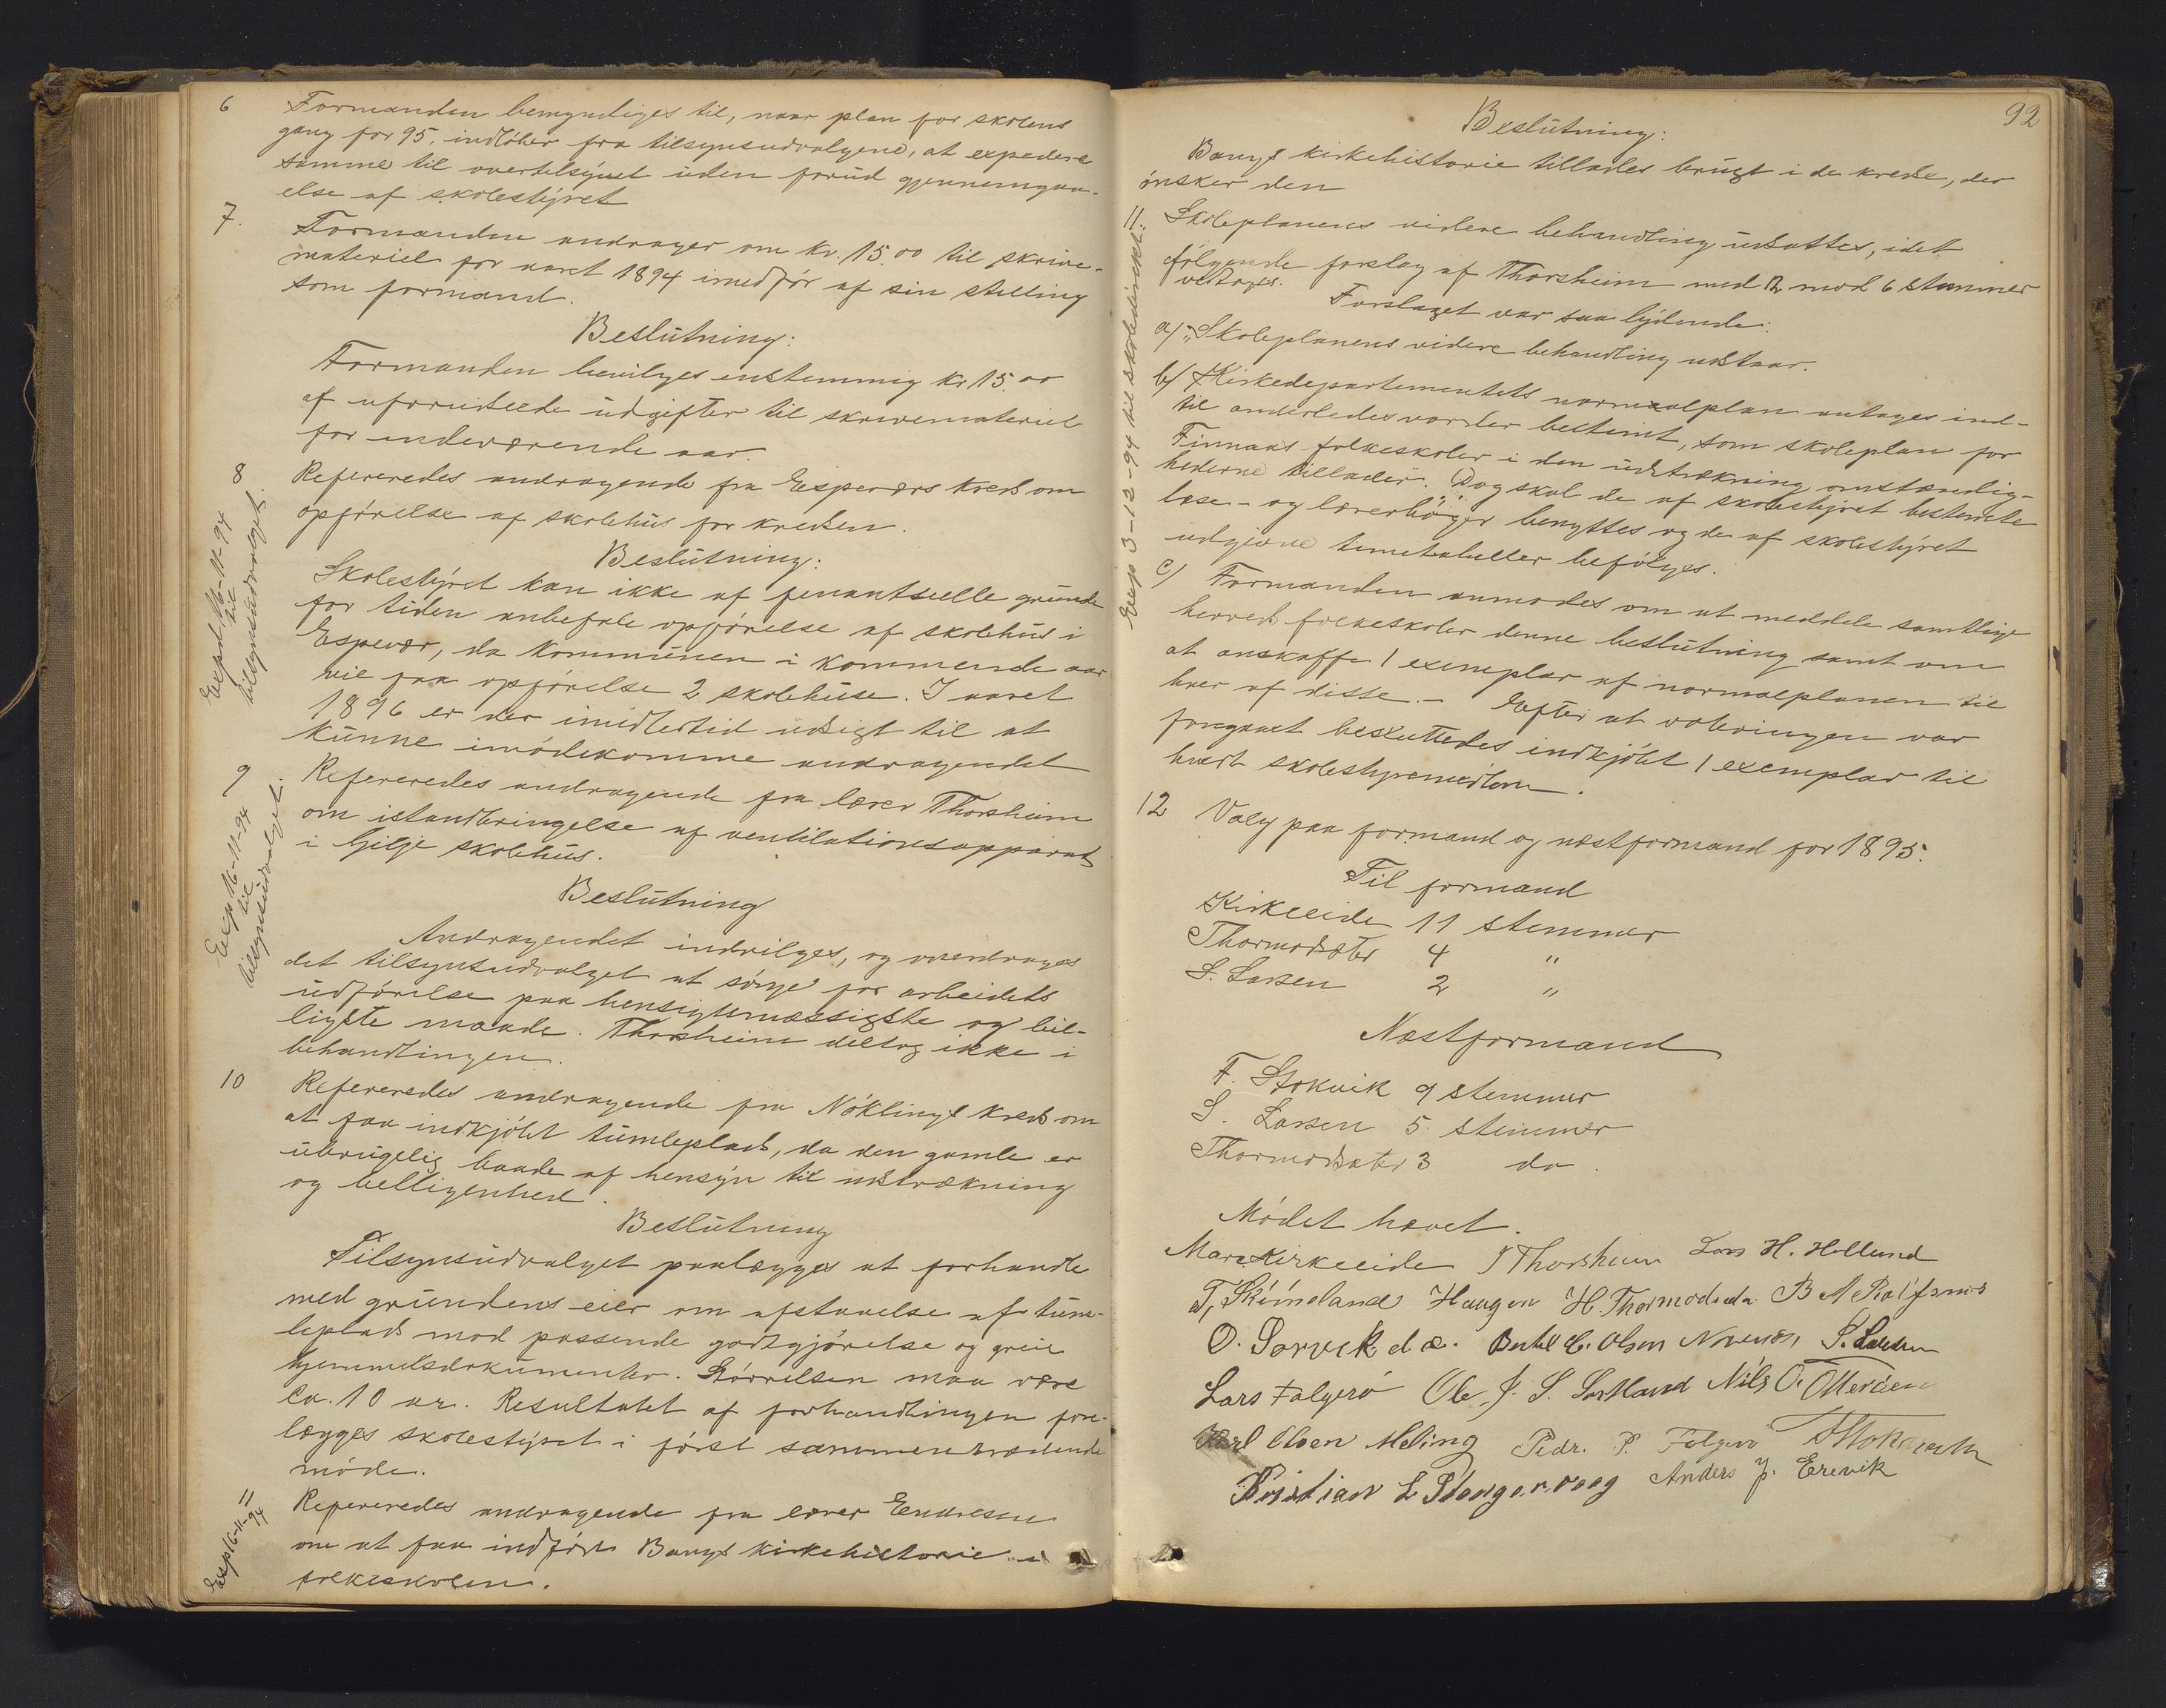 6 Formanden bemyndiges til, naar plan for skolens
gang for 95. indløber fra tilsynsudvalgene, at expedere
samme til overtilsynet uden forud gjennemgaa-
else af skolestyret
7. Formanden andrager om Kr. 15.00 til skrive-
materiel for aaret 1894 i medfør af sin stilling
som formand.
Beslutning:
Formanden bevilges enstemmig Kr 15.00
af uforudseede udgifter til skrivemateriel
for indeværende aar.
8 Refereredes andragende fra Espeværs kreds om
opførelse af skolehus for kredsen.
Expd. 16-11-94
til
tilsynsudvalget.
Beslutning:
Skolestyret kan ikke af finantsielle grunde
for tiden anbefale opførelse af skolehus i
Espevær, da Kommunen i kommende aar
vil faa opførelse 2 skolehuse. I aaret
1896 er der imidlertid udsigt til at
kunne imødekomme andragendet
9 Refereredes andragende fra lærer Thorsheim
om istandbringelse af ventilationsapparat
i Gilje skolehus.
Exp 16-11-94
til
tilsynsudvalget.
Beslutning
Andragendet indvilges, og overdrages
det tilsynsudvalget at sørge for arbeidets
udførelse paa hensigtsmæssigste og bil-
ligste maade. Thorsheim deltog ikke i
behandlingen.
10 Refereredes andragende fra Nøklings kreds om
at faa indkjøbt tumleplads, da den gamle er
ubrugelig baade af hensyn til udstrækning
og belligenhed.
Beslutning
Tilsynsudvalget paalægges at forhandle
med grundens eier om afstaaelse af tum-
leplads mod passende godtgjørelse og greie
hjemmelsdokumenter. Størrelsen maa være
ca. 10 ar. Resultatet af forhandlingen fore-
lægges skolestyret i først sammentrædende
møde.
11 Refereredes andragende fra lærer Endresen
om at faa indført Bangs kirkehistorie i
folkeskolen.
Exp 16-11-94
92
Beslutning:
Bangs kirkehistorie tillades brugt i de kredse, der
ønsker den
11. Skoleplanens videre behandling udsattes, idet
følgende forslag af Thorsheim med 12 mod 6 stemmer
vedtoges.
Exp 3-12-94 til skoledirekt:
Forslaget var saa lydende:
a) "Skoleplanens videre behandling udstaar.
b) Kirkedepartementets normalplan antages ind-
til anderledes vorder bestemt, som skoleplan for
Finnaas folkeskoler i den udstrækning omstændig-
hederne tillader. Dog skal de af skolestyret bestemte
læse- og lærerbøger benyttes og de af skolestyret
udgivne timetabeller befølges.
c) Formanden anmodes om at meddele samtlige
herreds folkeskoler denne beslutning samt om
at anskaffe 1 exemplar af normalplanen til
hver af disse. - Efter at voteringen var
foregaaet besluttedes indkjøbt 1 exemplar til
hvert skolestyremedlem.
12 Valg paa formand og næstformand for 1895.
Til formand
Kirkeeide 11 stemmer
Thormodsæter 4 "
S. Larsen 2 "
Næstformand
F. Stokvik 9 stemmer
S. Larsen 5 stemmer
Thormodsæter 3 do.
Mødet hævet.
Kirkeeide J Thorsheim Lars H. Holland
T. Skimeland Haugen H. Thormodsæter
O. Sørvik d.æ. Bertel C. Olsen S. Larsen
Lars Folgerø Ole J. S. Sortland Nils O. Otteråen
Karl Olsen Meling Pedr. P. Folgerø FStokvik
Kristian L Stangervaag Anders J. Erevik